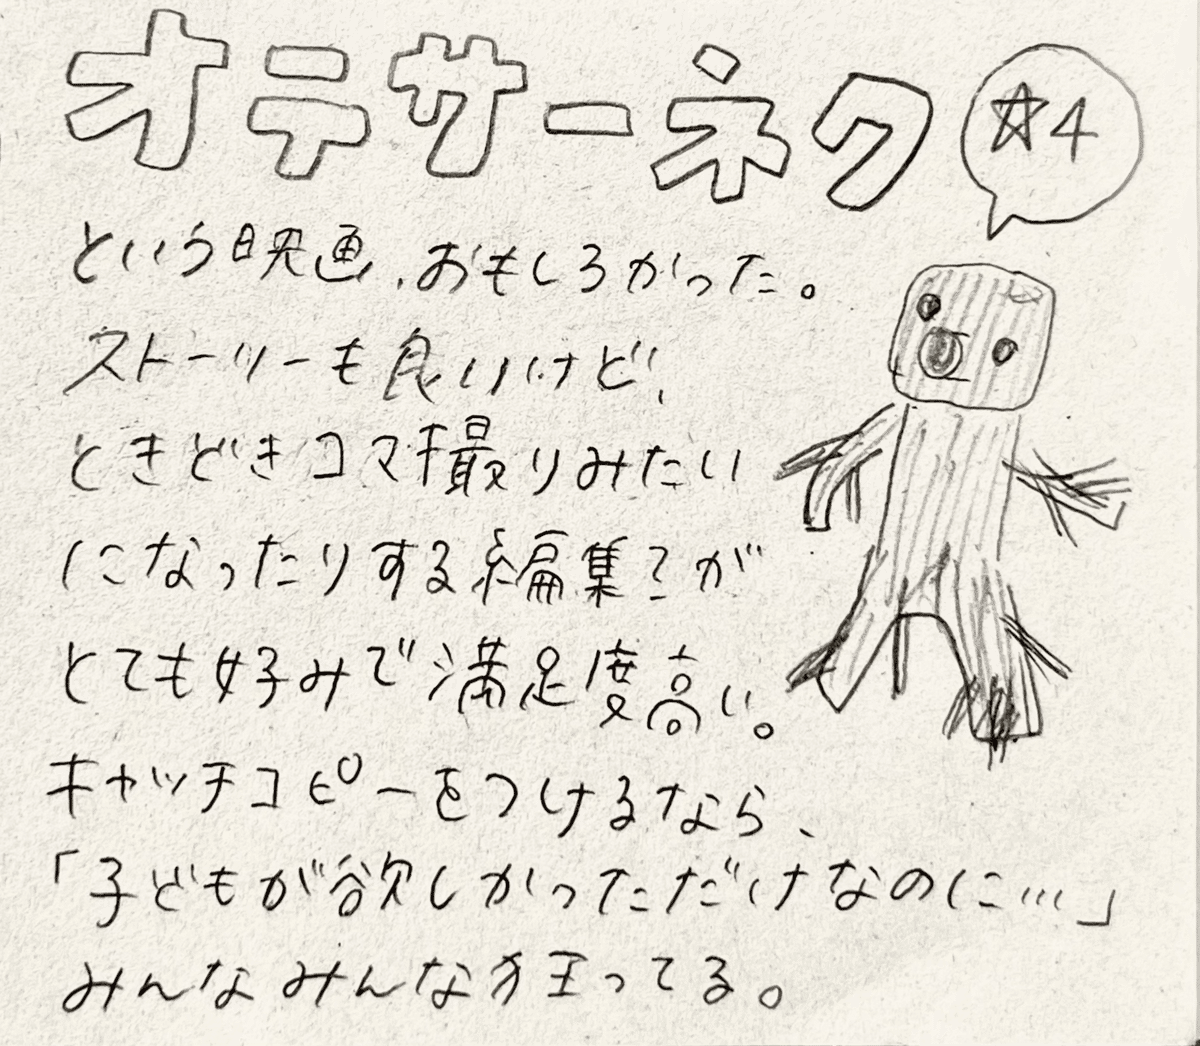 オテサーネク
☆4
という映画、おもしろかった。
ストーリーも良いけど、
ときどきコマ撮りみたい
になったりする編集？が
とても好みで満足度高い。
キャッチコピーをつけるなら、
「子どもが欲しかっただけなのに…」
みんなみんな狂ってる。